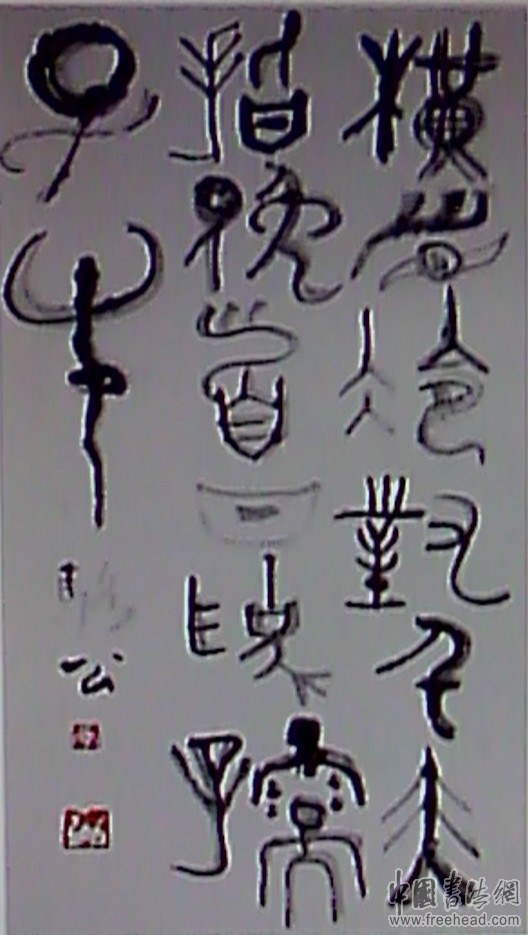 橫眉冷對千夫
指俛首甘為孺
子牛
公
中國書法網
www.freehead.com